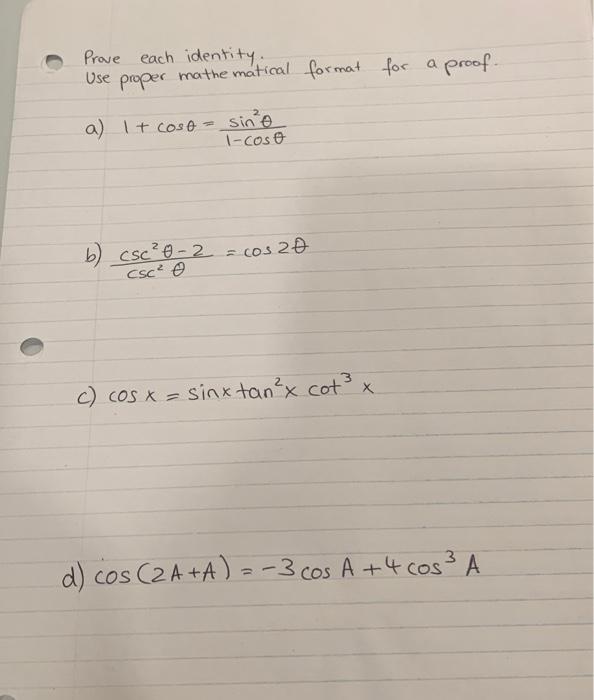 Prove each identity.
Use proper mathematical format for a proof.
a) 1 + cosθ = sin²θ / 1-cosθ
b) csc²θ - 2 / csc²θ = cos 2θ
c) cos x = sinx tan²x cot³ x
d) cos (2A+A) = -3 cos A + 4 cos³ A